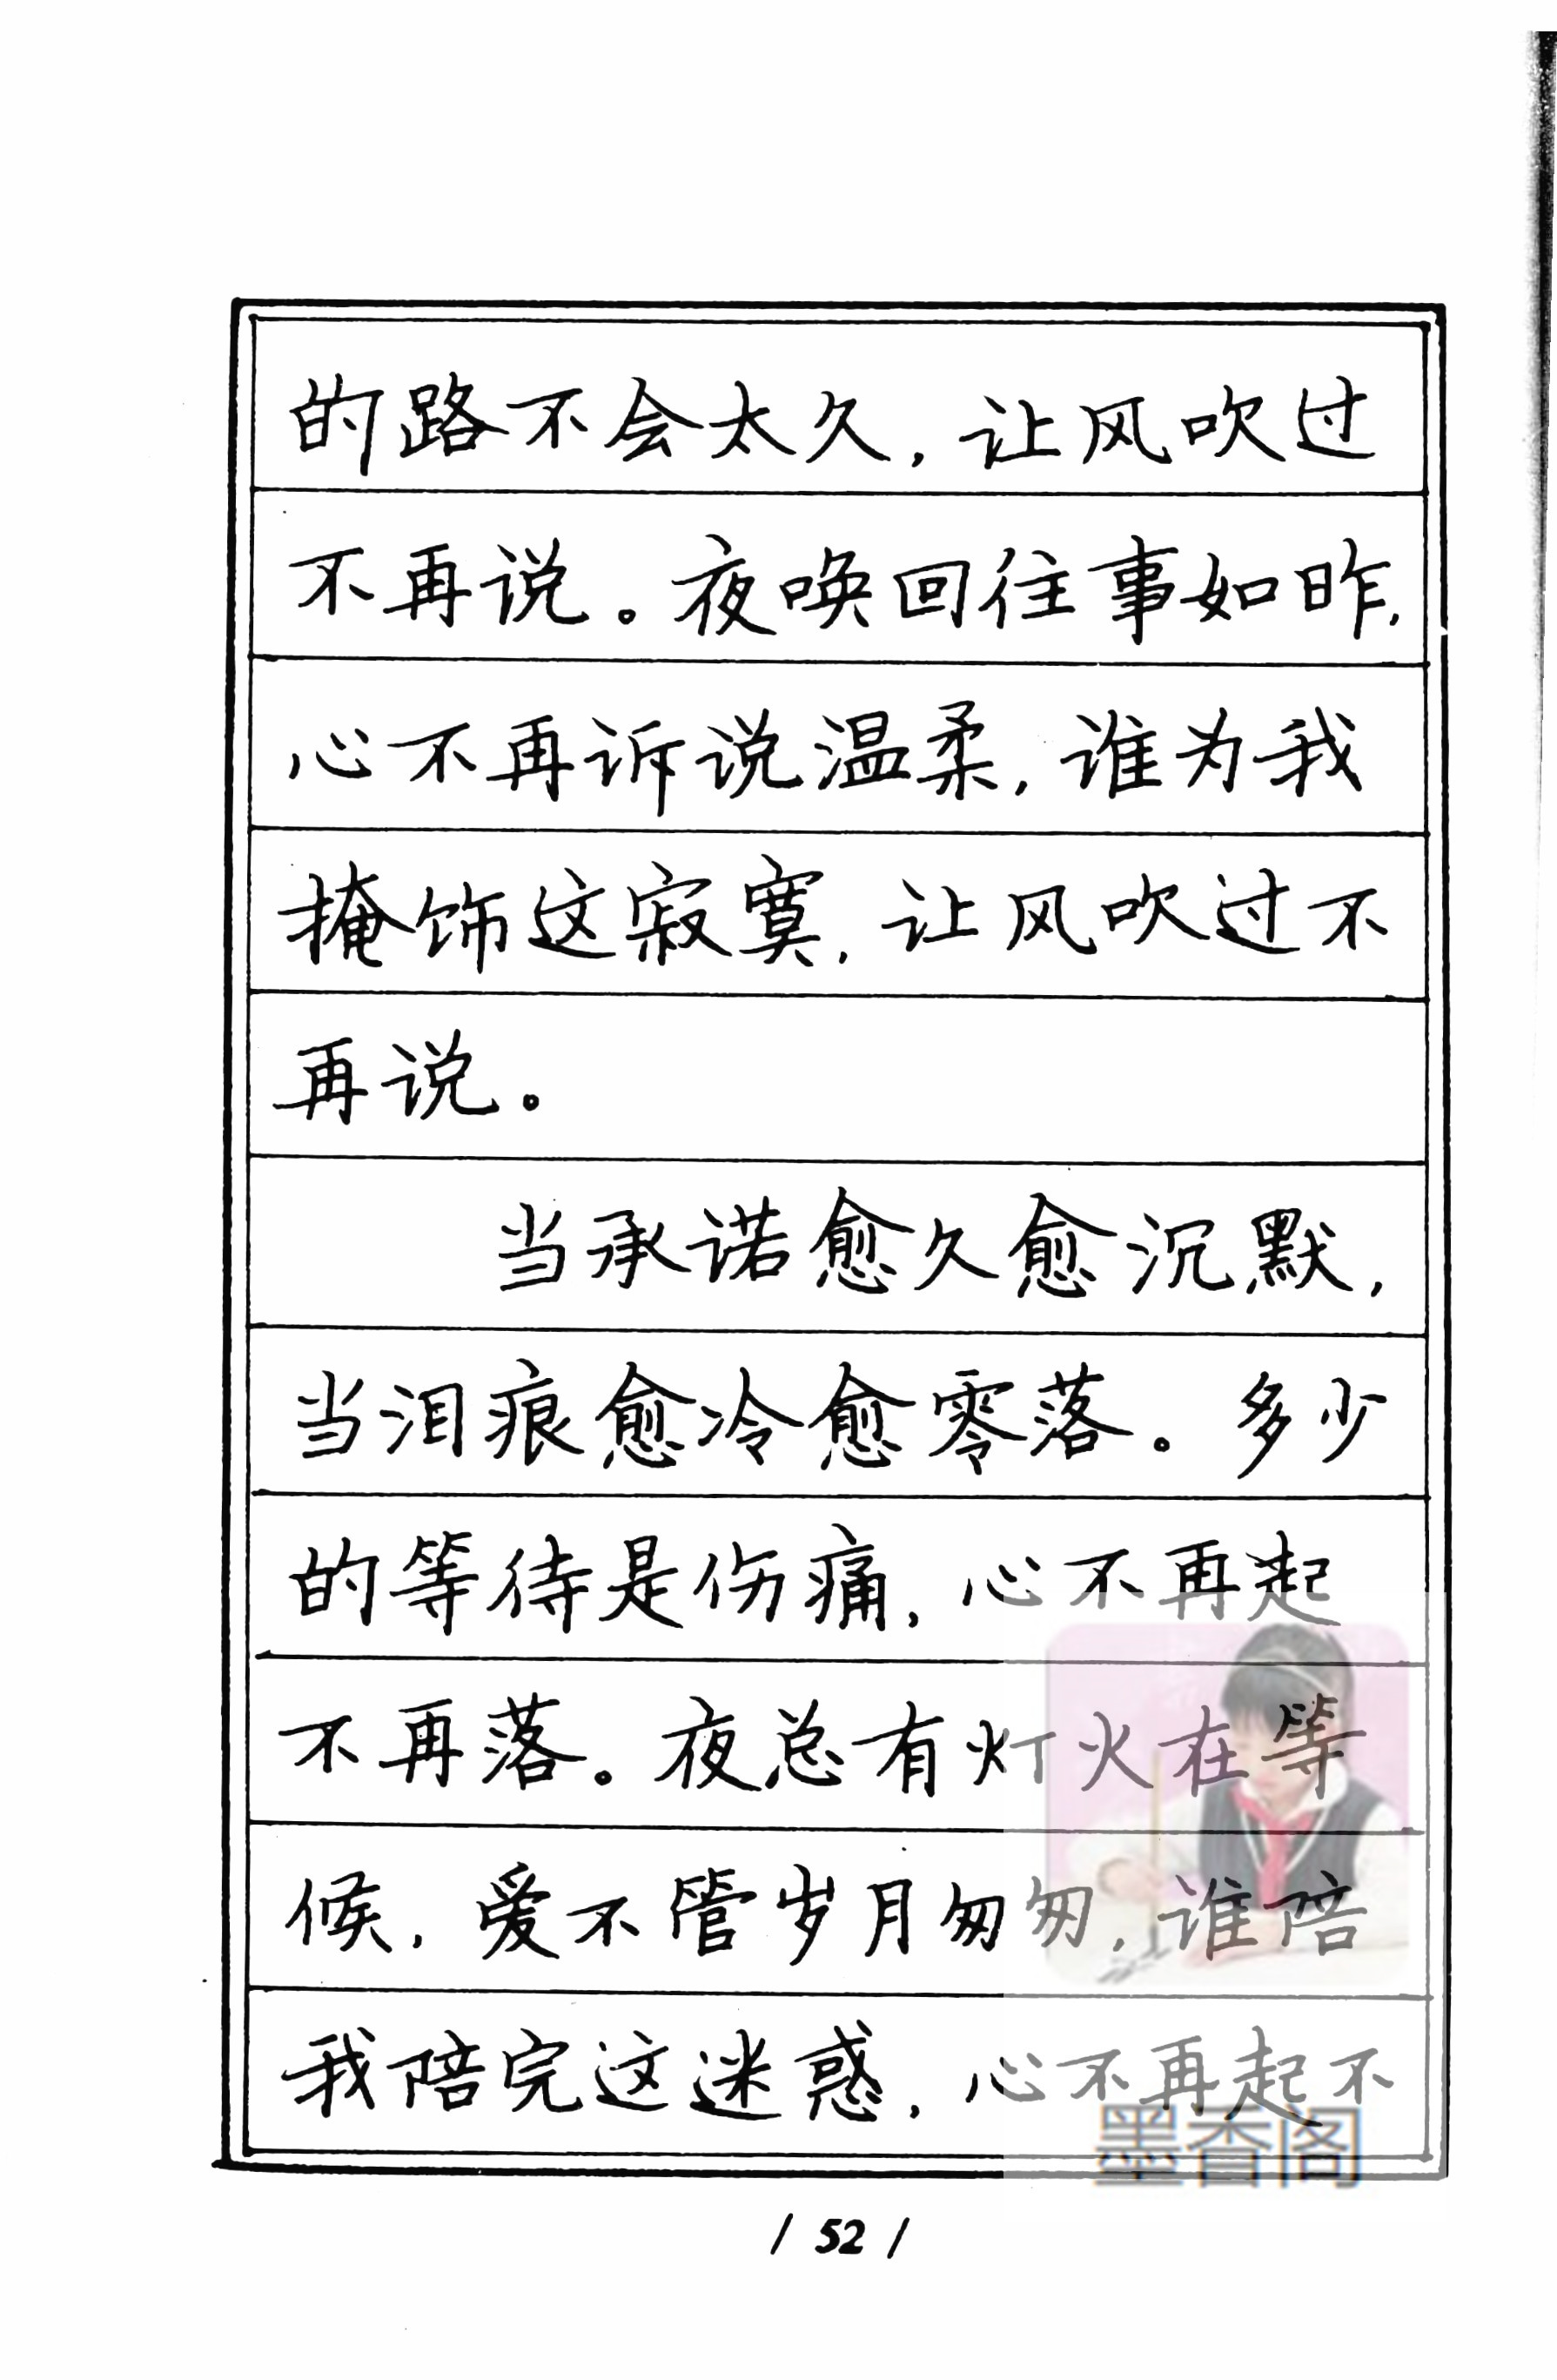 的路不会太久，让风吹过
不再说。夜唤回往事如昨，
心不再诉说温柔，谁为我
掩饰这寂寞，让风吹过不
再说。
当承诺愈久愈沉默，
当泪痕愈冷愈零落。多少
的等待是伤痛，心不再起
不再落。夜总有灯火在等
候，爱不管岁月匆匆，谁陪
我陪完这迷惑，心不再起不
墨香阁
/ 52 /